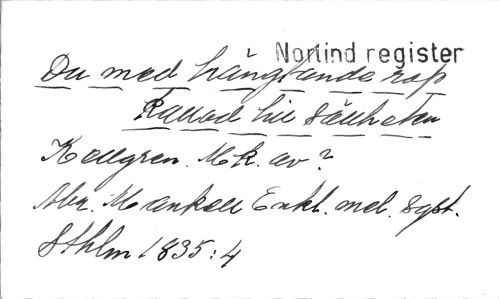 Norlind register
Du med hängtande rop
Kallad till sällheten
Kellgren. Mk. av?
Abr. Mankell Enkl. mel. 8 qst.
Sthlm 1835:4